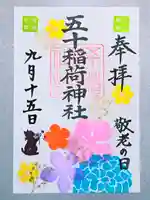 奉拝
敬老の日
五十稲荷神社
九月十五日